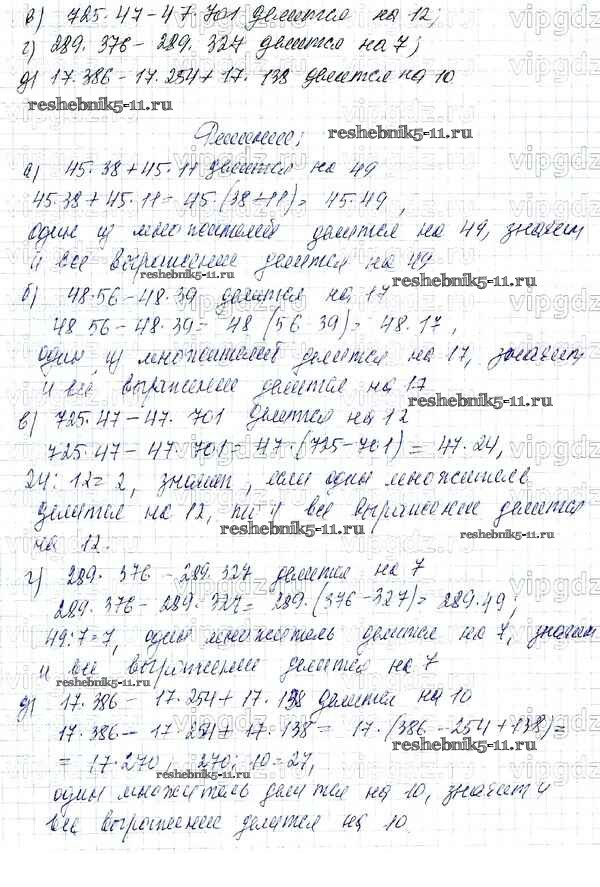 в) 725·47-47·701 делится на 12;
г) 289·376-289·327 делится на 7;
д) 17·386-17·254+17·138 делится на 10
reshebnik5-11.ru
reshebnik5-11.ru
Решение:
reshebnik5-11.ru
а) 45·38+45·11 делится на 49
45·38+45·11=45·(38+11)=45·49,
один из множителей делится на 49, значит
и все выражение делится на 49
reshebnik5-11.ru
reshebnik5-11.ru
б) 48·56-48·39 делится на 17
48 56-48·39=48(56-39)=48·17,
один из множителей делится на 17, значит
и все выражение делится на 17
reshebnik5-11.ru
в) 725·47-47·701 делится на 12
725·47-47·701=47·(725-701)=47·24,
24:12=2, значит, если один множитель
делится на 12, то и все выражение делится
на 12.
reshebnik5-11.ru
reshebnik5-11.ru
г) 289·376-289·327 делится на 7
289·376-289·327=289·(376-327)=289·49;
49:7=7, один множитель делится на 7, значит
и все выражение делится на 7
reshebnik5-11.ru
д) 17·386-17·254+17·138 делится на 10
17·386-17·254+17·138=17·(386-254+138)=
reshebnik5-11.ru
=17·270; 270:10=27,
reshebnik5-11.ru
один множитель делится на 10, значит и
все выражение делится на 10.
reshebnik5-11.ru
vipgdz